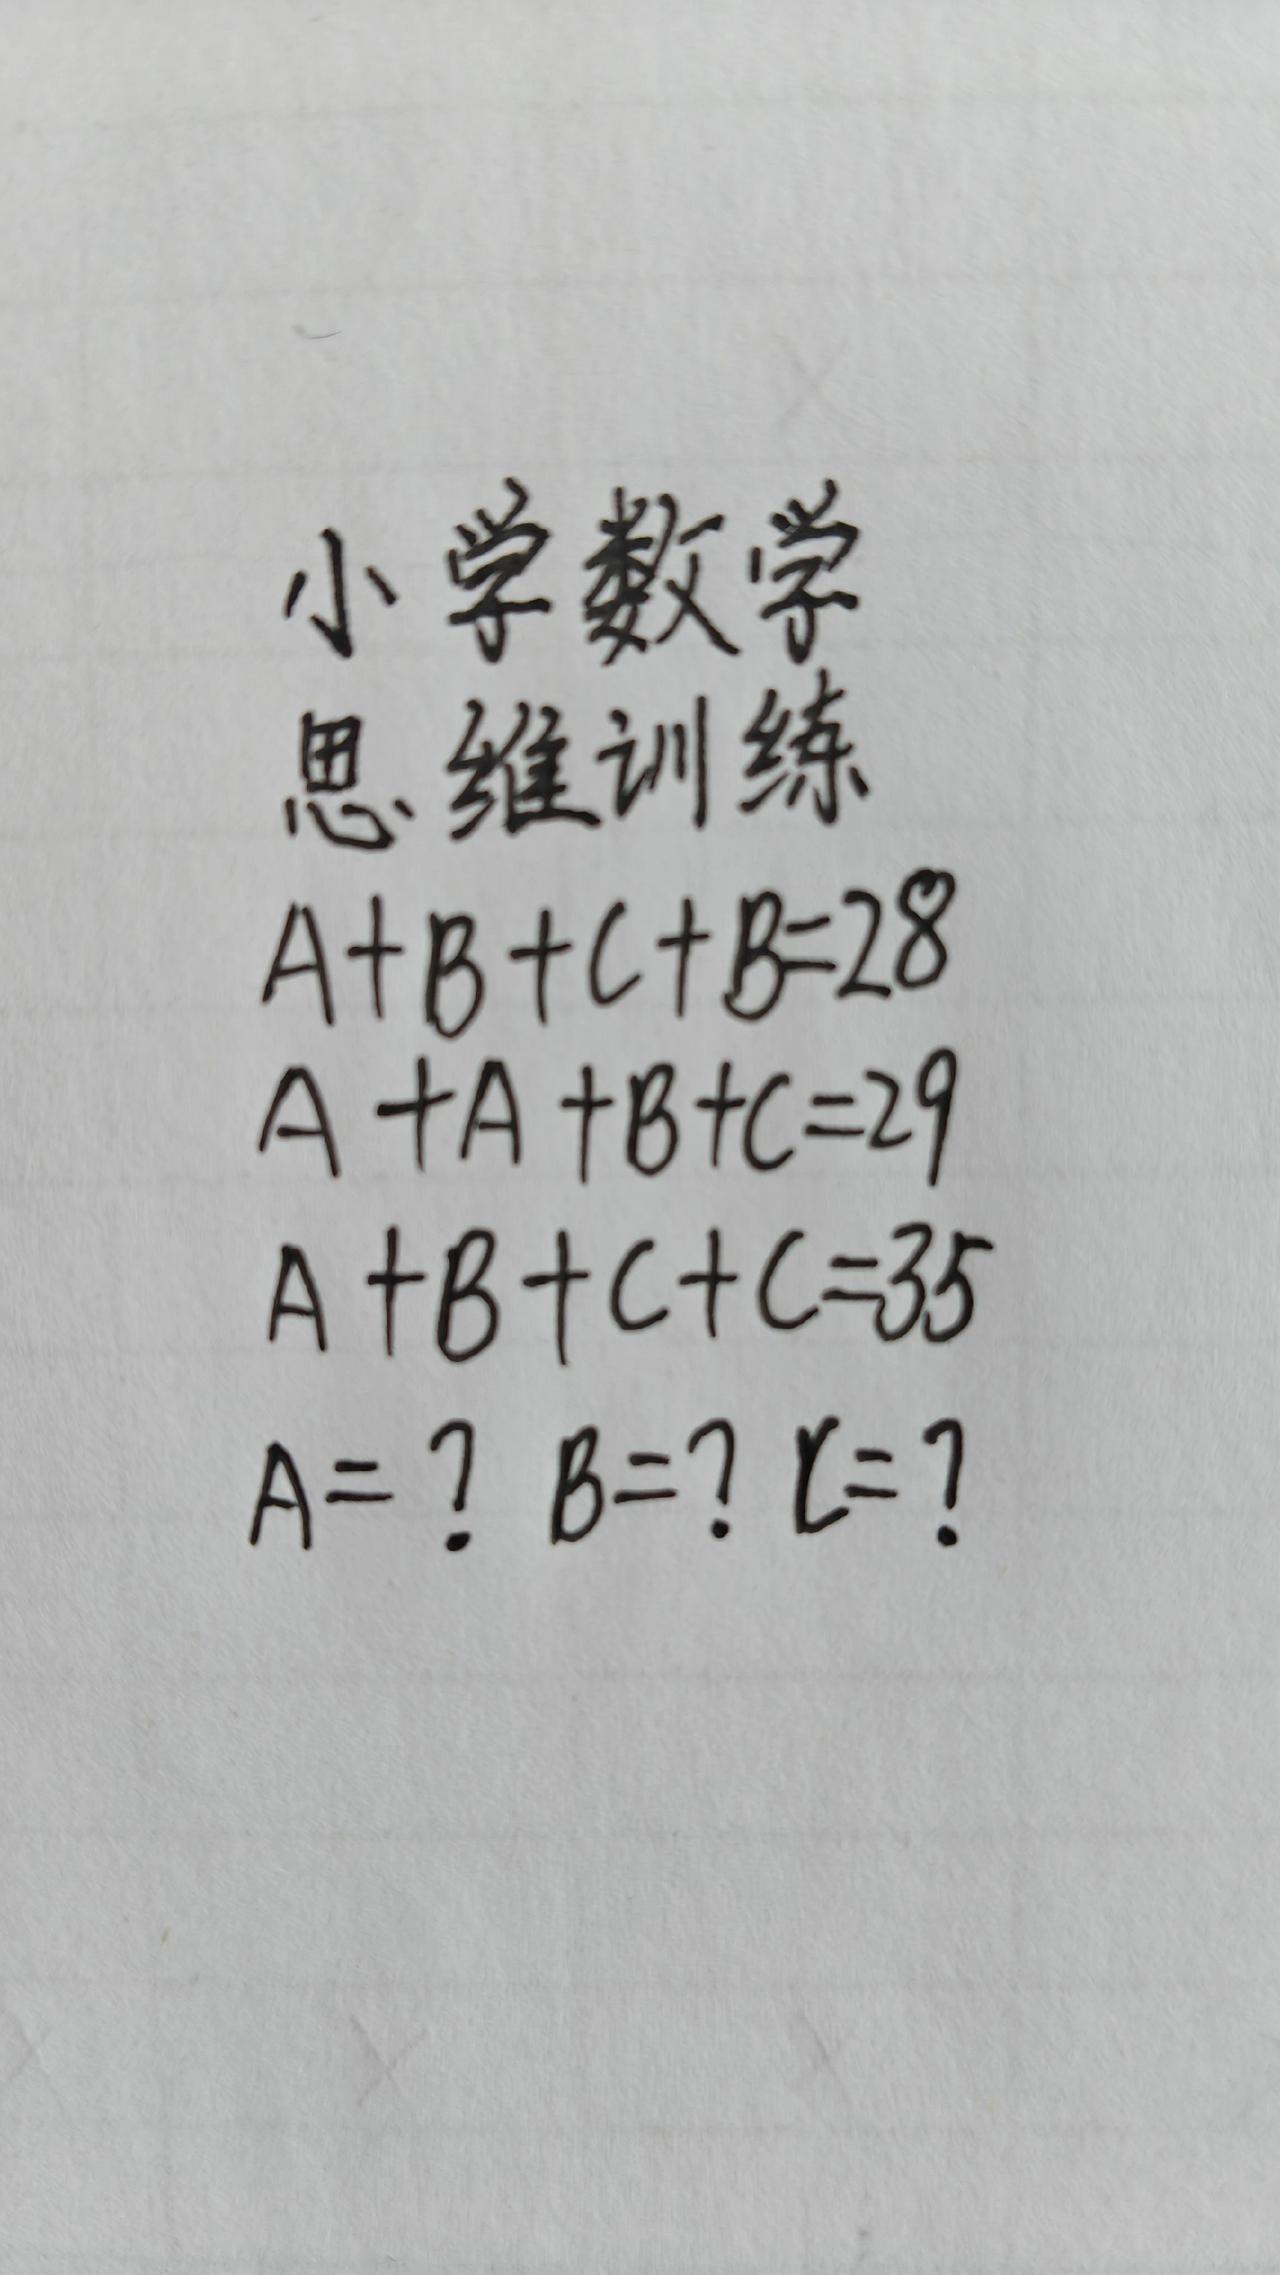 小学数学
思维训练
A+B+C+B=28
A+A+B+C=29
A+B+C+C=35
A=? B=? C=?